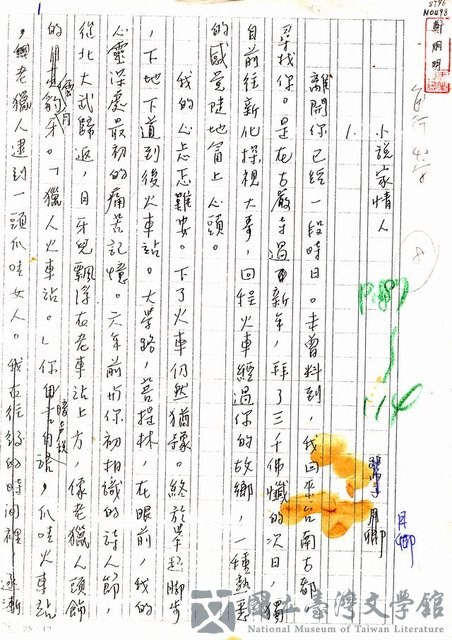 8796
N0498
鄭烱明
8
小說家情人
P.87
114
月卿
月卿
1.
離開你已經一段時日。未曾料到，我回來台南古都
尋找你。是在古嚴寺過新年，拜了三千佛懺的次日，獨
自前往新化探視大哥，回程火車經過你的故鄉，一種熱悉
的感覺陡地冒上心頭。
我的心忐忑難安。下了火車仍然猶豫。終於舉起腳步
，下地下道到後火車站。大學路，菩提林，在眼前，我的
心靈深處最初的痛苦記憶。六年前與你初相識的詩人節，
從北大武歸返，目牙兒飄浮在老車站上方，像老獵人頭飾
的雲豹牙。「獵人火車站。」你自言自語，爪哇火車站
，老獵人遇到一頭爪哇女人。我在往後的時間裡逐漸
國立臺灣文學館
National Museum of Taiwan Literature